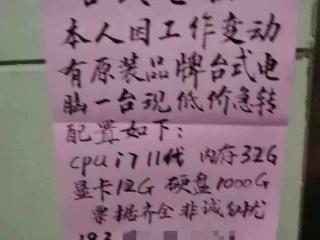 本人因工作变动
有原装品牌台式电
脑一台现低价急转
配置如下:
cpu i7 11代 内存32G
显卡12G 硬盘1000G
票据齐全 非诚勿扰